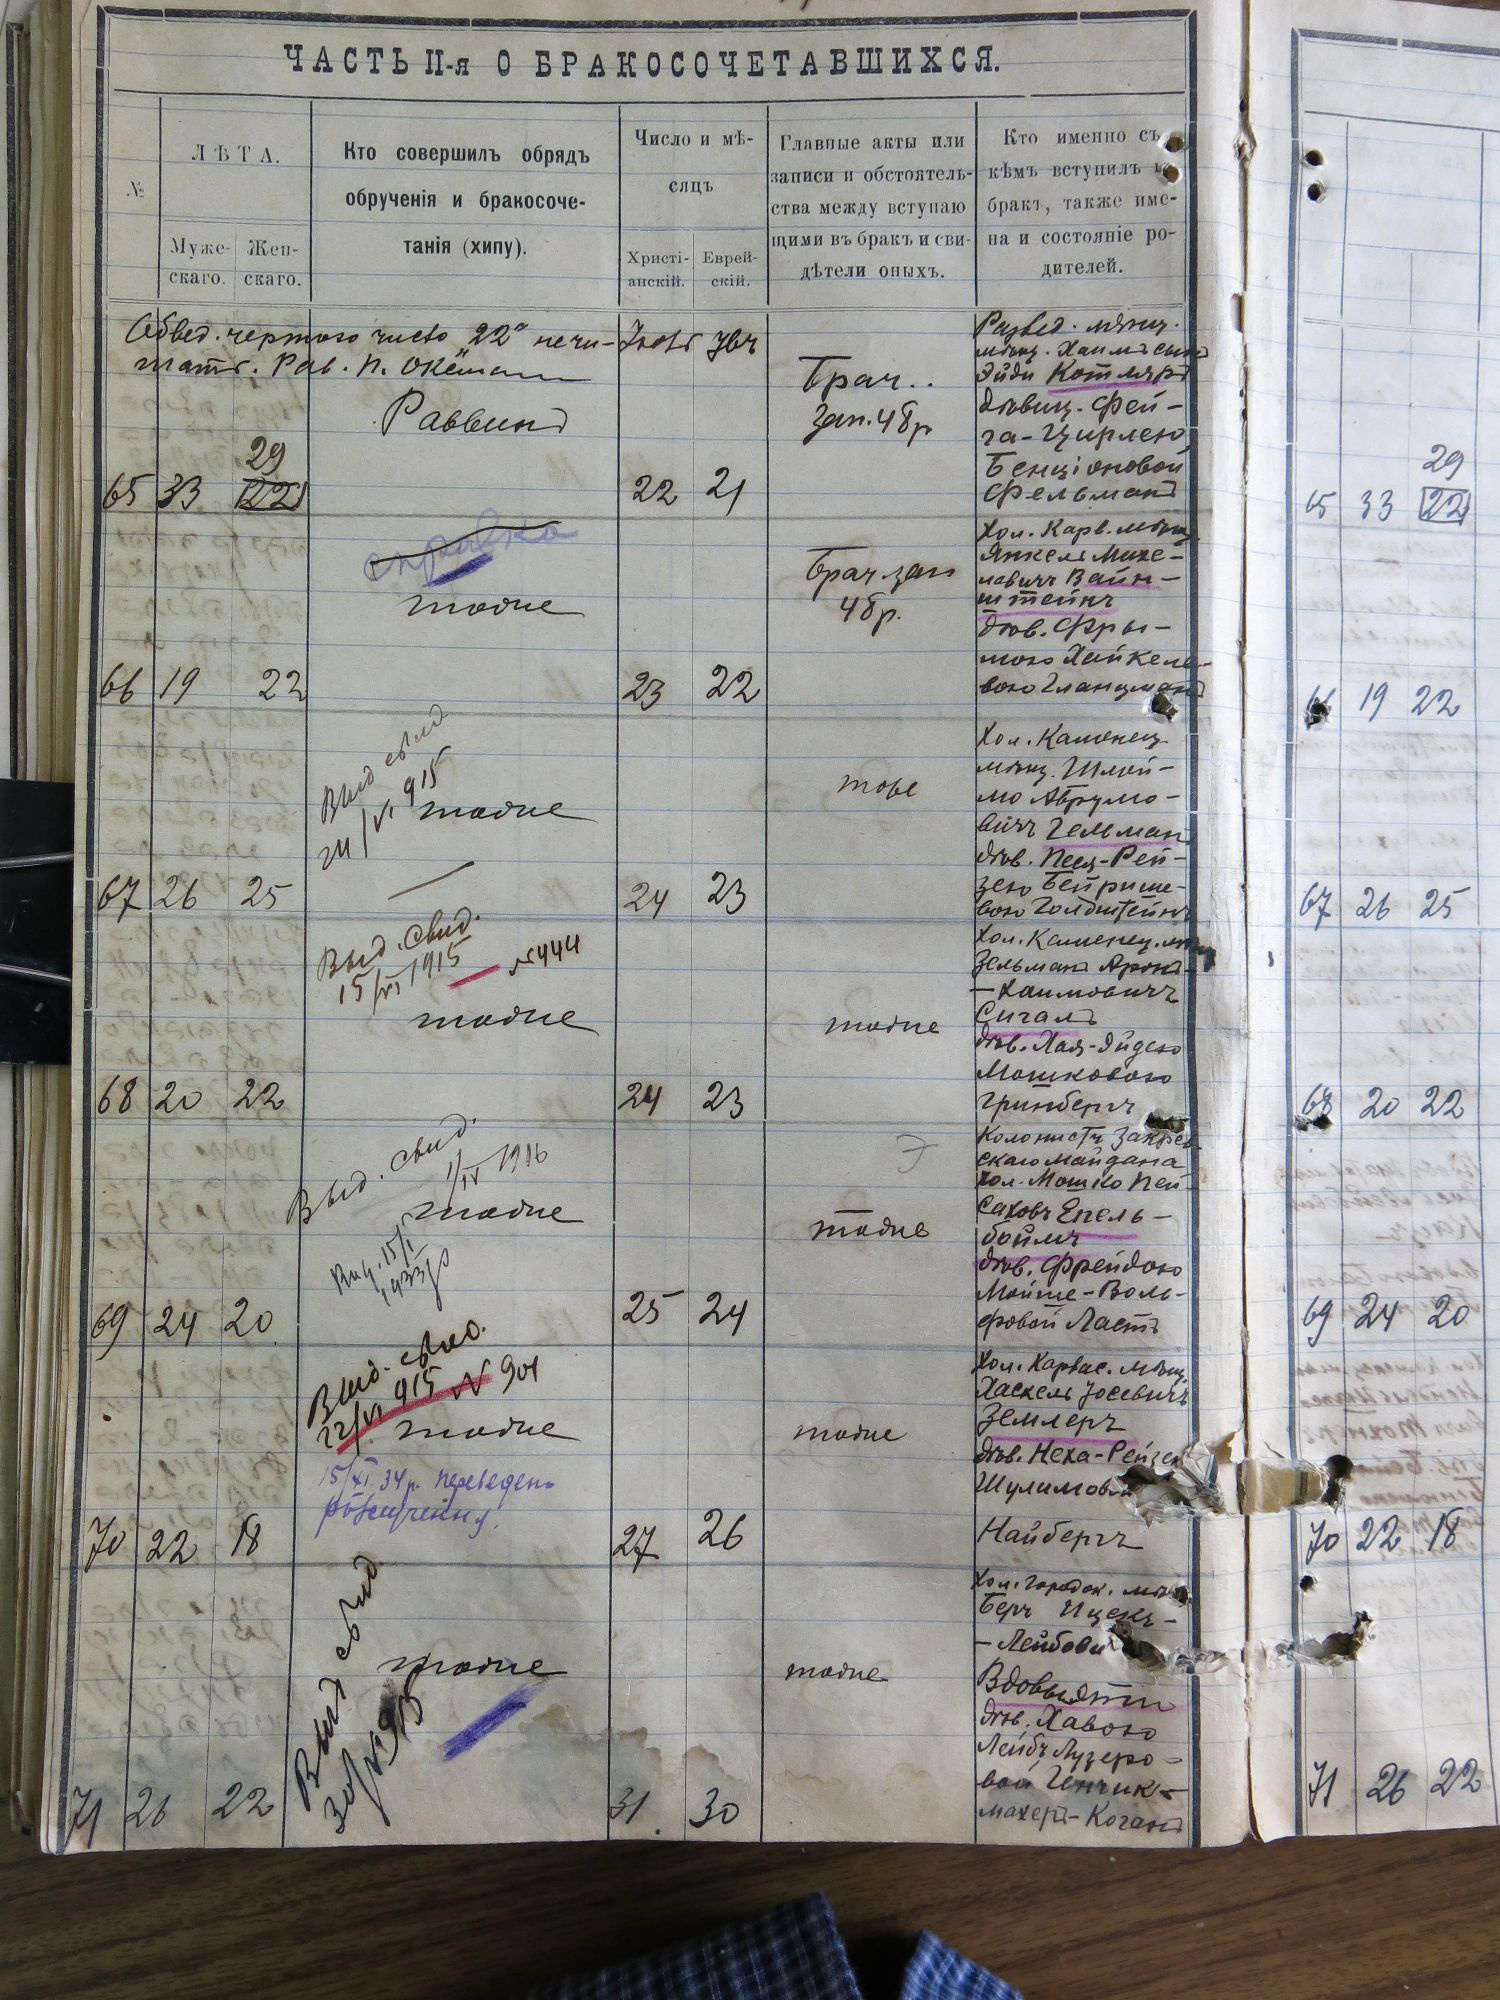 ЧАСТЬ II-я О БРАКОСОЧЕТАВШИХСЯ.
№
ЛѢТА.
Муже-
скаго.
Жен-
скаго.
Кто совершилъ обрядъ
обрученія и бракосоче-
танія (хипу).
Число и мѣ-
сяцъ
Христі-
анскій.
Еврей-
скій.
Главные акты или
записи и обстоятель-
ства между вступаю
щими въ бракъ и сви-
дѣтели оныхъ.
Кто именно съ
кѣмъ вступилъ
бракъ, также име-
на и состояніе ро-
дителей.
Обвед. чертою число "22" не чи-
тать. Рав. П.
Раввинъ
65 33 29
22
22 21
Брач..
Зап. 48р
Развед. мѣщ.
Хаимъ сынъ
Эйди Котляръ
дѣвиц. Фей-
га-Цирлею
Бенціоновой
Фельманъ
справка
тоже
66 19 22
23 22
Брач зап
48р.
Хол. Карв. мѣщ.
Янкель Михе-
левичъ Вайн-
штейнъ
дѣв. Фры-
мою Хайкеле-
вою Гланцманъ
Выд свид
24/VI 915
тоже
67 26 25
24 23
тоже
Хол. Каменец
мѣщ. Шлой-
мо Абрумо-
вичъ Гельман
дѣв. Песя-Рей-
зею Бейрише-
вою Голдштейнъ
Выд. Свид.
15/VI 1915
№444
тоже
68 20 22
24 23
тоже
Хол. Каменец.
Зельманъ Аронъ-
-Хаимовичъ
Сигалъ
дѣв. Хая-Эйдею
Мошковою
Гринбергъ
Выд. Свид.
1/IV 1916
тоже
69 24 20
25 24
тоже
Колонистъ
скаго майдана
хол. Мошко Пей
саховъ Епель-
боймъ
дѣв. Фрейдою
Мойше-Воль-
фовой Ластъ
Выд. свид.
22/VI 915 № 901
тоже
15/XI 34 р. переведено
70 22 18
27 26
тоже
Хол. Карвас. мѣщ.
Хаскель Іосевичъ
Землеръ
дѣв. Неха-Рейзею
Шулимов
Найбергъ
Выд свид
915
тоже
71 26 22
31 30
тоже
Хол. Городок.
Беръ Ицекъ-
-Лейбови
Вдовьяти
дѣв. Хавою
Лейбъ Лузеро-
вой Генчик-
махеръ-Коганъ
65 33 29
22
66 19 22
67 26 25
68 20 22
69 24 20
70 22 18
71 26 22